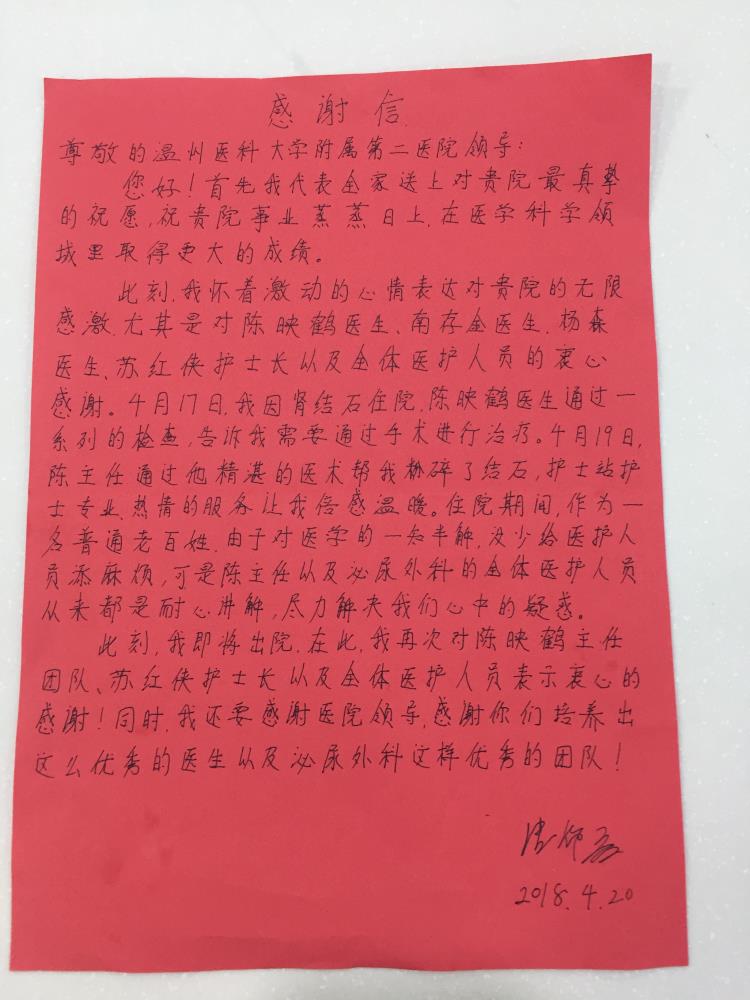 感谢信
尊敬的温州医科大学附属第二医院领导:
您好!首先我代表全家送上对贵院最真挚
的祝愿,祝贵院事业蒸蒸日上,在医学科学领
域里取得更大的成绩。
此刻,我怀着激动的心情表达对贵院的无限
感激,尤其是对陈映鹤医生、南存金医生、杨森
医生、苏红侠护士长以及全体医护人员的衷心
感谢。4月17日,我因肾结石住院,陈映鹤医生通过一
系列的检查,告诉我需要通过手术进行治疗。4月19日,
陈主任通过他精湛的医术帮我粉碎了结石,护士站护
士专业、热情的服务让我倍感温暖。住院期间,作为一
名普通老百姓,由于对医学的一知半解,没少给医护人
员添麻烦,可是陈主任以及泌尿外科的全体医护人员
从来都是耐心讲解,尽力解决我们心中的疑惑。
此刻,我即将出院,在此,我再次对陈映鹤主任
团队、苏红侠护士长以及全体医护人员表示衷心的
感谢!同时,我还要感谢医院领导,感谢你们培养出
这么优秀的医生以及泌尿外科这样优秀的团队!
2018.4.20